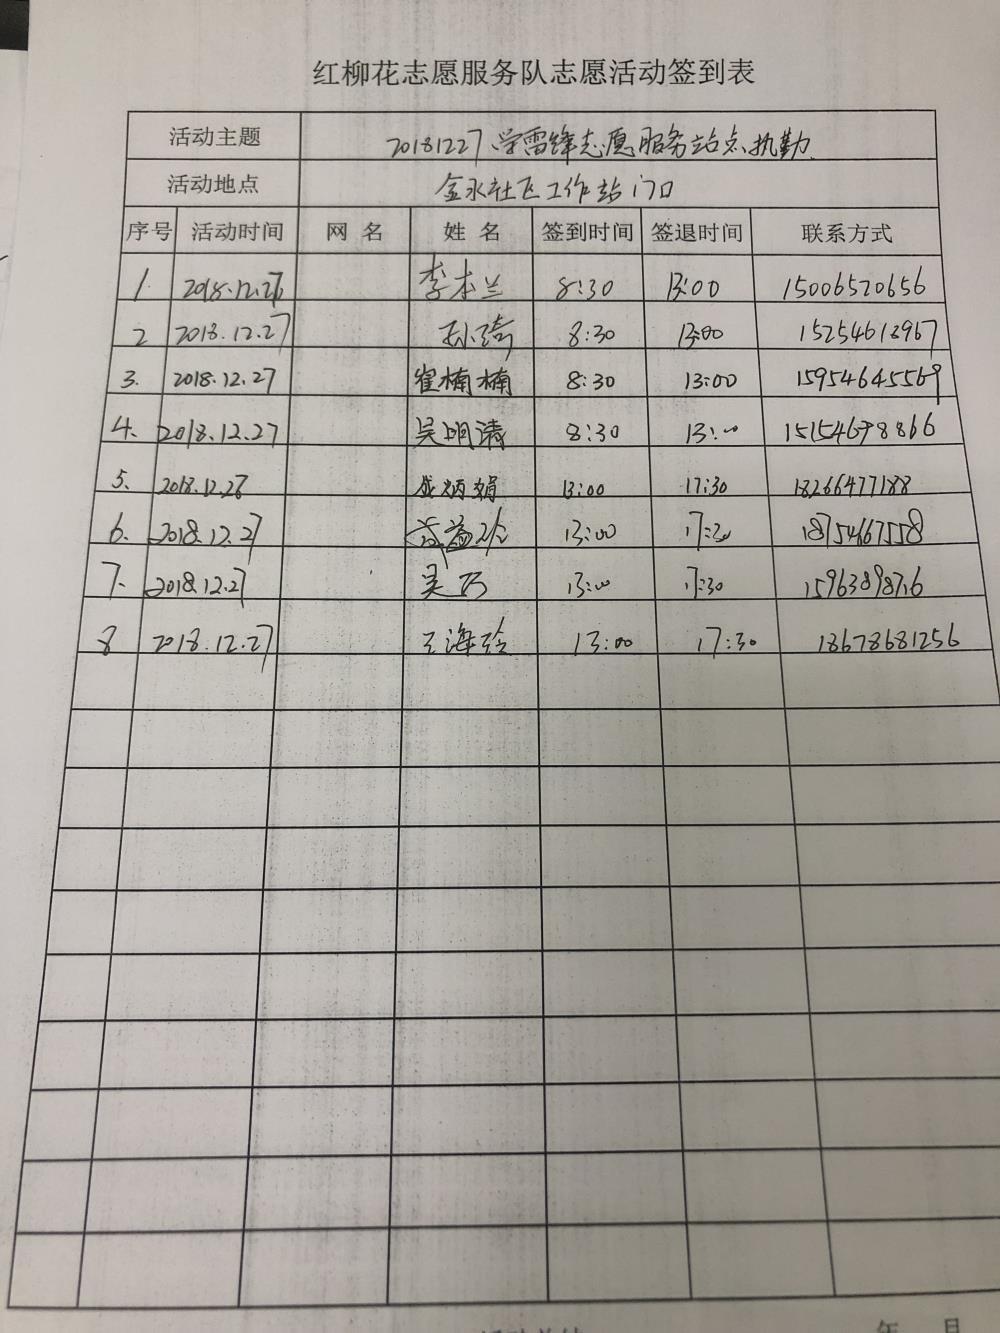 红柳花志愿服务队志愿活动签到表
活动主题 20181227学雷锋志愿服务站点执勤
活动地点 金水社区工作站门口
序号 活动时间 网 名 姓 名 签到时间 签退时间 联系方式
1. 2018.12.27 李本兰 8:30 13:00 15006520656
2 2018.12.27 孙琦 8:30 13:00 15254613967
3. 2018.12.27 崔楠楠 8:30 13:00 15954645569
4. 2018.12.27 吴明清 8:30 13:00 15154698866
5. 2018.12.27 盛炳娟 13:00 17:30 18266477188
6. 2018.12.27 13:00 17:30 18754667558
7. 2018.12.27 吴巧 13:00 17:30
8 2018.12.27 王海玲 13:00 17:30 18678681256
年 月